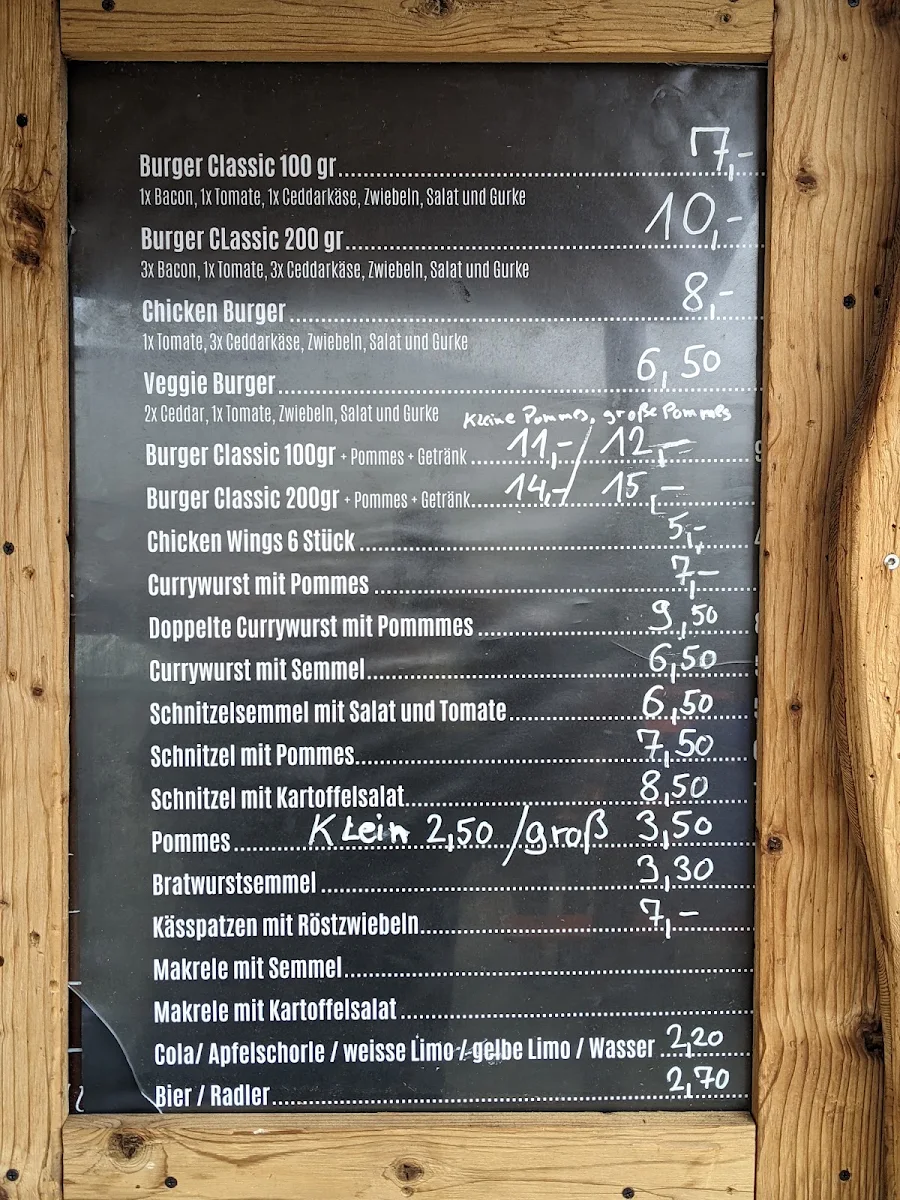 Burger Classic 100 gr 7,-
1x Bacon, 1x Tomate, 1x Ceddarkäse, Zwiebeln, Salat und Gurke
Burger CLassic 200 gr 10,-
3x Bacon, 1x Tomate, 3x Ceddarkäse, Zwiebeln, Salat und Gurke
Chicken Burger 8,-
1x Tomate, 3x Ceddarkäse, Zwiebeln, Salat und Gurke
Veggie Burger 6,50
2x Ceddar, 1x Tomate, Zwiebeln, Salat und Gurke
Kleine Pommes, große Pommes
Burger Classic 100gr + Pommes + Getränk 11,- / 12,-
Burger Classic 200gr + Pommes + Getränk 14,- / 15,-
Chicken Wings 6 Stück 5,-
Currywurst mit Pommes 7,-
Doppelte Currywurst mit Pommmes 9,50
Currywurst mit Semmel 6,50
Schnitzelsemmel mit Salat und Tomate 6,50
Schnitzel mit Pommes 7,50
Schnitzel mit Kartoffelsalat 8,50
Pommes Klein 2,50 / groß 3,50
Bratwurstsemmel 3,30
Kässpatzen mit Röstzwiebeln 7,-
Makrele mit Semmel
Makrele mit Kartoffelsalat
Cola/ Apfelschorle / weisse Limo / gelbe Limo / Wasser 2,20
Bier / Radler 2,70